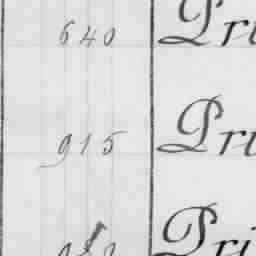 640 Pri
915 Pri
Pri